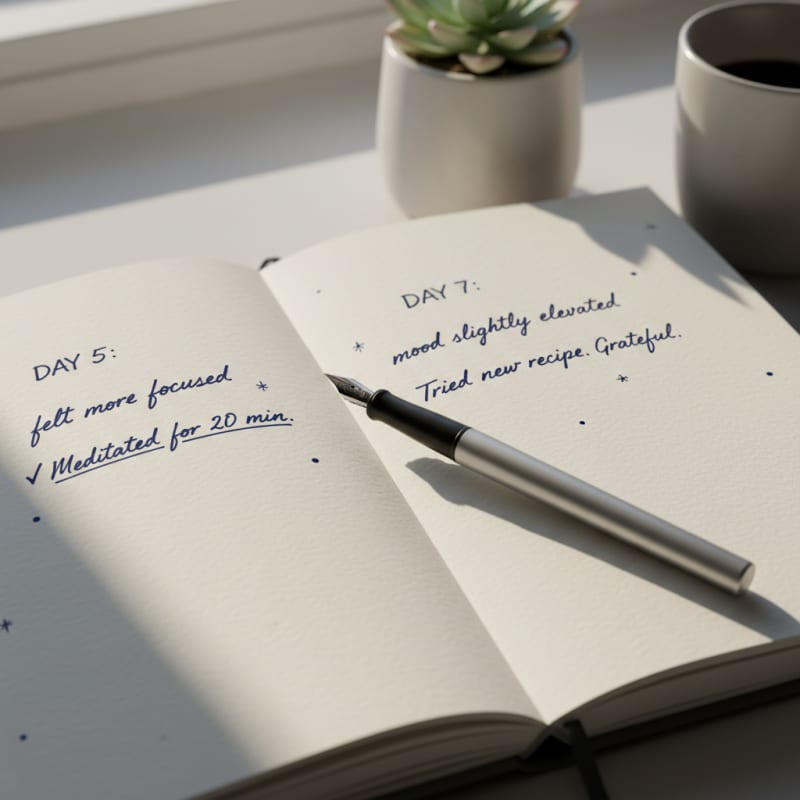 DAY 5:
felt more focused
✓ Meditated for 20 min.
DAY 7:
mood slightly elevated
Tried new recipe. Grateful.